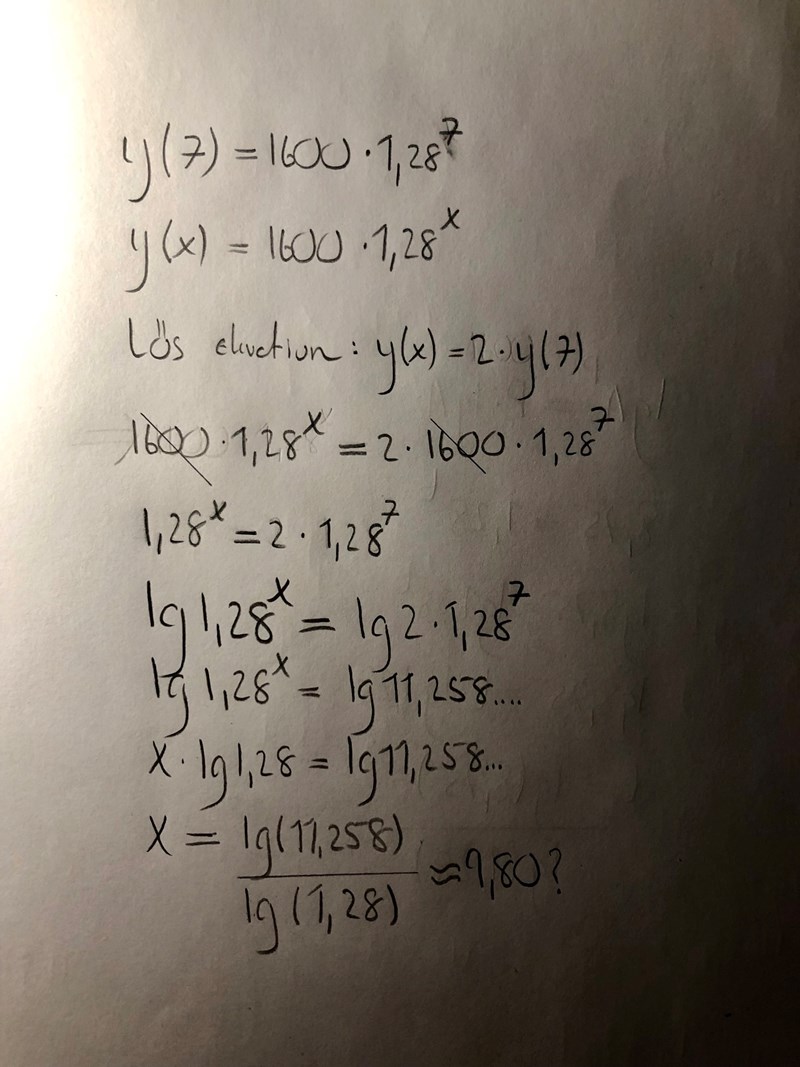 y(7) = 1600 · 1,28^7
y(x) = 1600 · 1,28^x
Lös ekvation: y(x) = 2 · y(7)
1600 · 1,28^x = 2 · 1600 · 1,28^7
1,28^x = 2 · 1,28^7
lg 1,28^x = lg 2 · 1,28^7
lg 1,28^x = lg 11,258....
x · lg 1,28 = lg 11,258...
x = lg(11,258) / lg(1,28) ≈ 9,80?